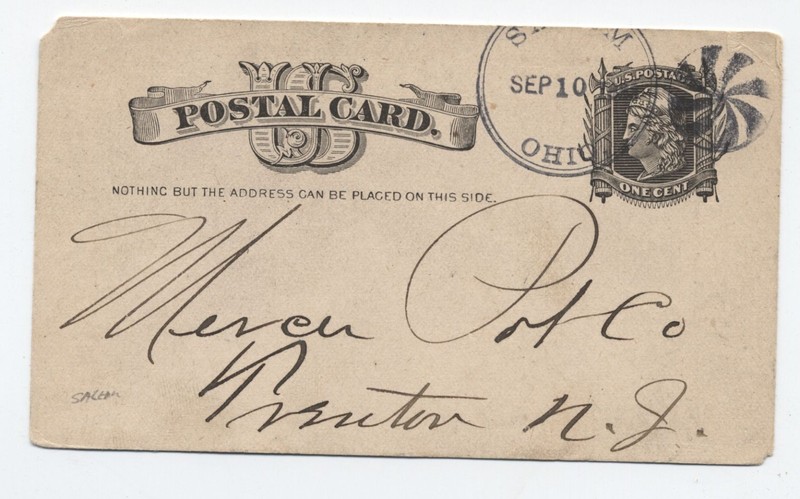 US
POSTAL CARD.
NOTHING BUT THE ADDRESS CAN BE PLACED ON THIS SIDE.
SEP 10
OHIO
U.S. POSTAGE
ONE CENT
Mercer Pot Co
Trenton N. J.
SALEM